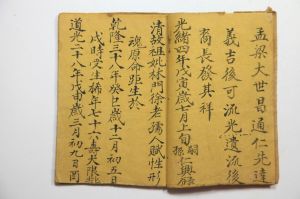 孟梁大世昌通仁先達
義吉後可流光遺流後
裔長發其祥
光緒四年戊寅歲七月上旬
嗣孫仁興錄
清故祖妣林門徐老孺人賦性形
魂原命距生於
乾隆三十八年癸巳歲十二月初五日
戌時受生稀年七十六壽大限
道光二十八年戊申歲三月初九日